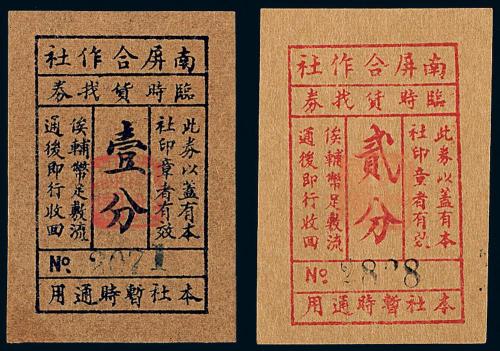 南屏合作社
臨時貨找券
此券以蓋有本
社印章者有效
壹分
俟輔幣足敷流
通後即行收回
No 2071
本社暫時通用
南屏合作社
臨時貨找券
此券以蓋有本
社印章者有效
貳分
俟輔幣足敷流
通後即行收回
No
本社暫時通用